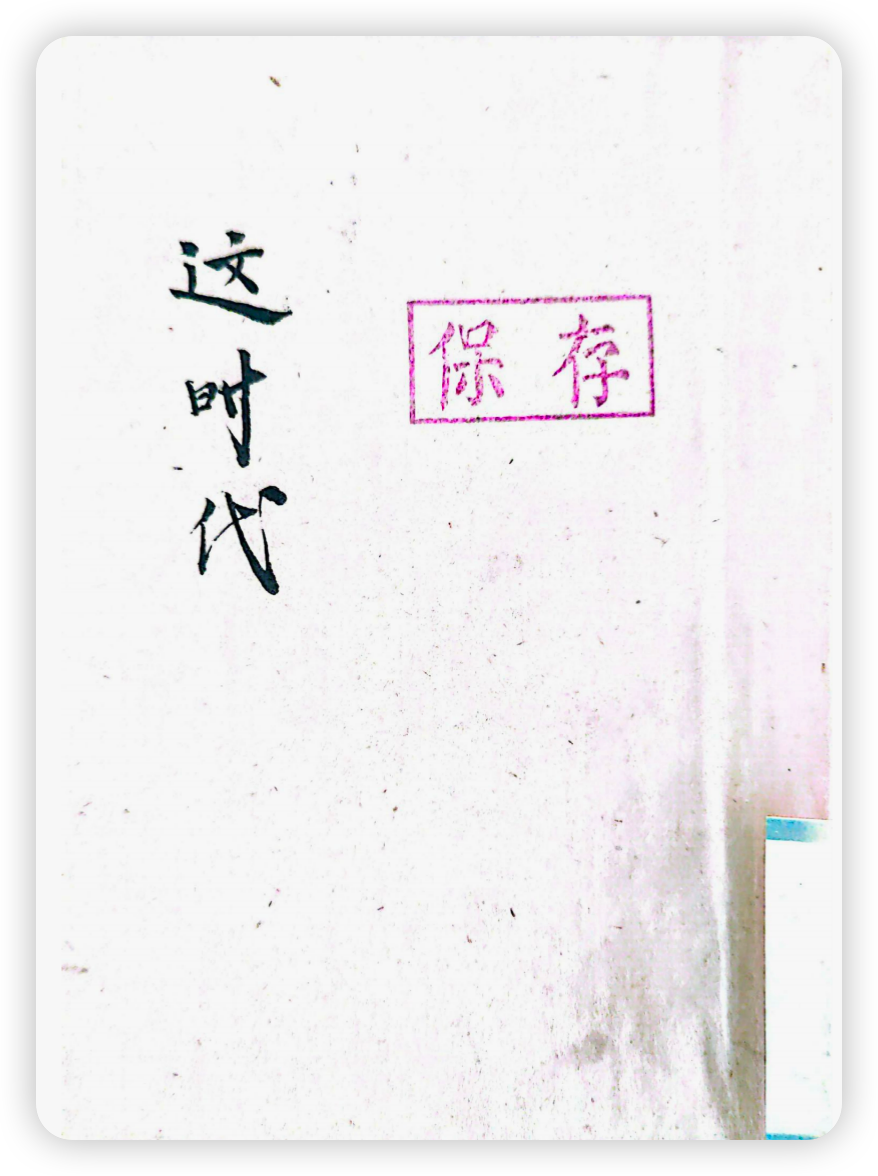 这时代
保存